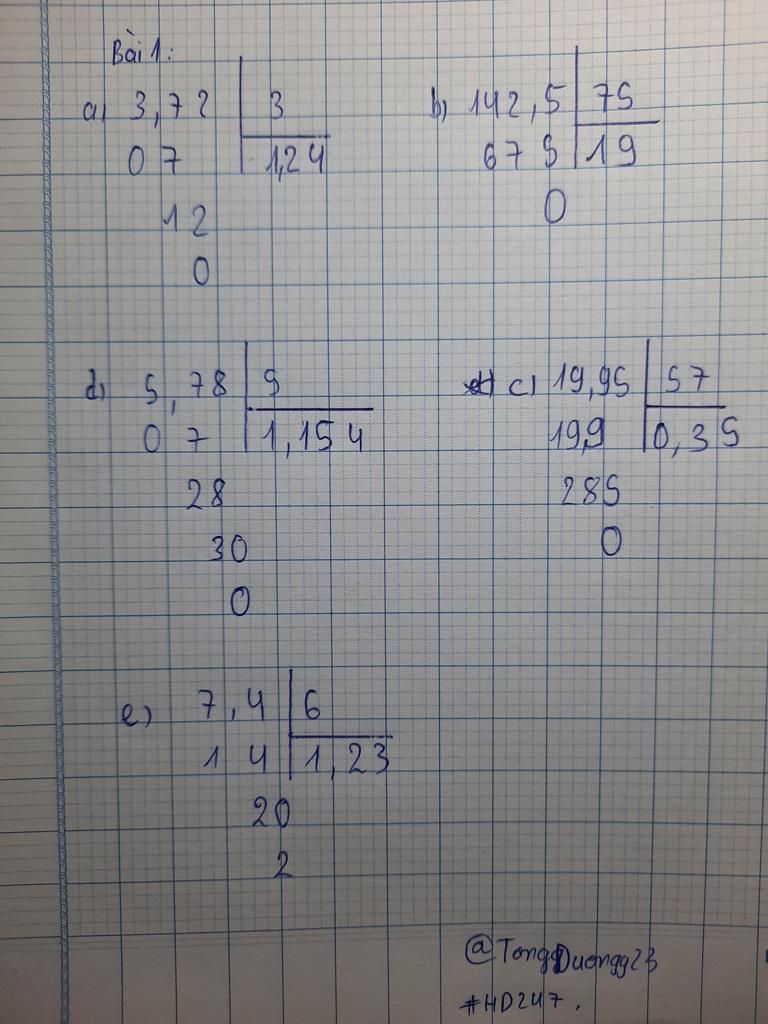 Bài 1:
a) 3,72 3
07 1,24
12
0
b) 142,5 75
675 19
0
d) 5,78 5
07 1,154
28
30
0
c) 19,95 57
19,9 0,35
285
0
e) 7,4 6
14 1,23
20
2
@TongDuongg23
#HD247.